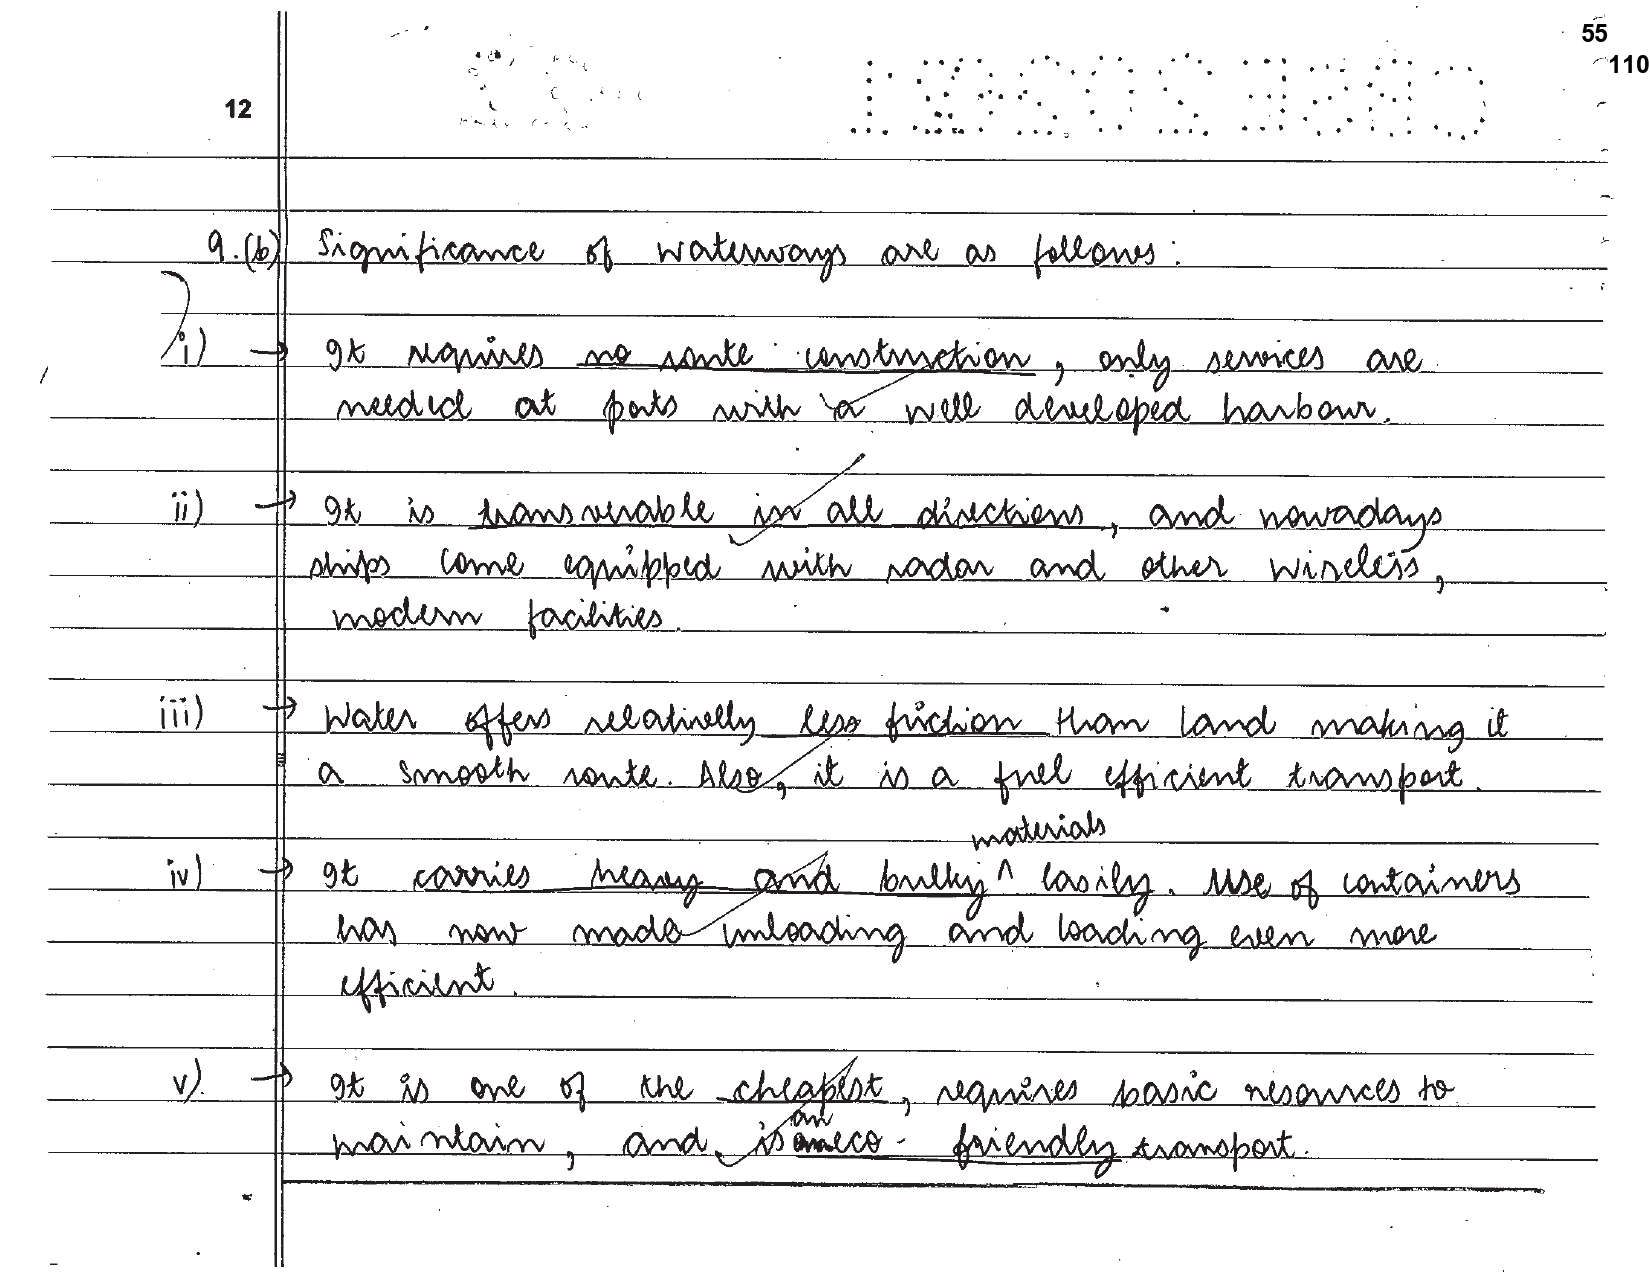 55
110
12
9.(b) Significance of waterways are as follows:
i) → It requires no route construction, only services are
needed at ports with a well developed harbour.
ii) → It is transverable in all directions, and nowadays
ships come equipped with radar and other wireless,
modern facilities.
iii) → Water offers relatively less friction than land making it
a smooth route. Also, it is a fuel efficient transport.
materials
iv) → It carries heavy and bulky ^ easily. Use of containers
has now made unloading and loading even more
efficient.
v) → It is one of the cheapest, requires basic resources to
an
maintain, and is eco-friendly transport.